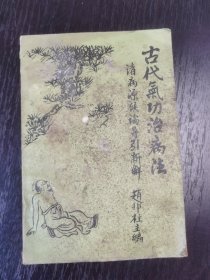 古代氣功治病法
諸病源候論導引新解
趙邦柱主編